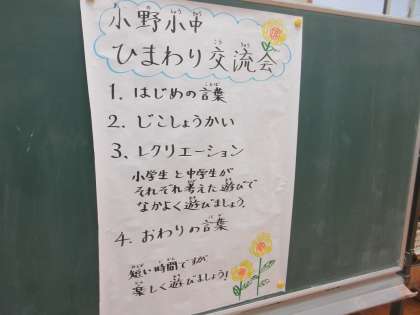 小野小中
ひまわり交流会
1. はじめの言葉
2. じこしょうかい
3. レクリエーション
小学生と中学生が
それぞれ考えた遊びで
なかよく遊びましょう
4. おわりの言葉
短い時間ですが
楽しく遊びましょう!